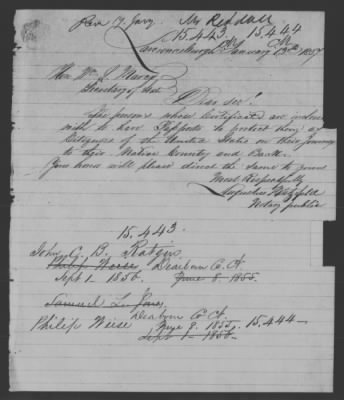 Mr Reddall
15.443 15.444
Lawrenceburgh
January
Hon Wm L Marcy
Secretary of State
Dear Sir!
The persons whose Certificates are
wish to have Passports to protect them as
Citizens of the United States on their Journey
to their Native Country and Back.
You will please direct the same to yours
Most Respectfully
Notary public
15.443.
John G. B.
Philip Weise Dearborn C. Ct.
Sept 1. 1856. June 8. 1855.
Samuel L.
Dearborn C Ct.
Philip Weise June 8. 1855. 15.444
Sept 1 - 1856.